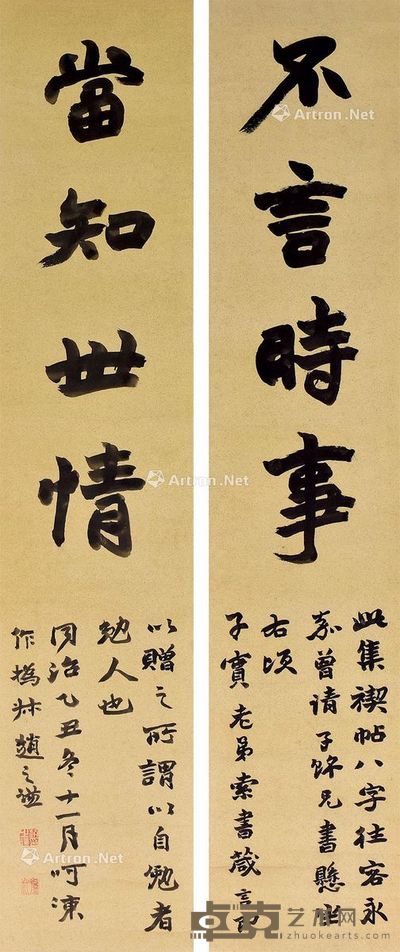 不言時事
此集禊帖八字往客永
嘉曾請子兄書懸坐
右頃
子寶老弟索書箴言即
當知世情
以贈之所謂以自勉者
勉人也
同治乙丑冬十一月呵凍
作撝叔趙之謙
Artron.Net
Artron.Net
Artron.Net
Artron.Net
Artron.Net
Artron.Net
卓克艺术网
www.zhuokearts.com